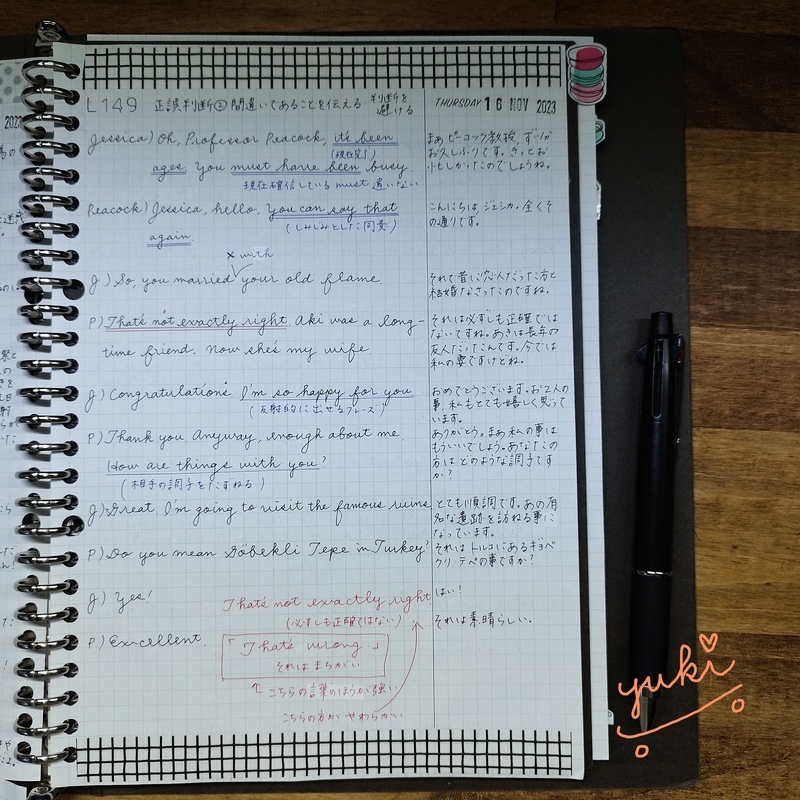 L149 正誤判断② 間違いであることを伝える 判断を避ける
THURSDAY 16 NOV 2023
2023
Jessica) Oh, Professor Peacock, it's been
(現在完了)
ages. You must have been busy.
現在確信している must 違いない
Peacock) Jessica, hello. You can say that
(しみじみとした同意)
again.
× with
J) So, you married your old flame.
P) That's not exactly right. Aki was a long-
time friend. Now she's my wife.
J) Congratulations. I'm so happy for you
(反射的に出せるフレーズ)
P) Thank you. Anyway, enough about me.
How are things with you?
(相手の調子をたずねる)
J) Great. I'm going to visit the famous ruins
P) Do you mean Göbekli Tepe in Turkey?
J) Yes!
P) Excellent.
That's not exactly right
(必ずしも正確ではない)
「That's wrong.」
それはまちがい
↑こちらの言葉のほうが強い
こちらの方がやわらかい
まあピーコック教授、ずいぶん
お久しぶりです。きっとお
忙しかったのでしょうね。
こんにちは、ジェシカ。全くそ
の通りです。
それで昔の恋人だった方と
結婚なさったのですね。
それは必ずしも正確では
ないですね。あきは長年の
友人だったんです。今では
私の妻ですけどね。
おめでとうございます。お2人の
事、私もとても嬉しく思って
います。
ありがとう。まあ私の事は
もういいでしょう。あなたの
方はどのような調子です
か?
とても順調です。あの有
名な遺跡を訪ねる事に
なっています。
それはトルコにあるギョベ
クリ・テペの事ですか?
はい!
それは素晴らしい。
yuki